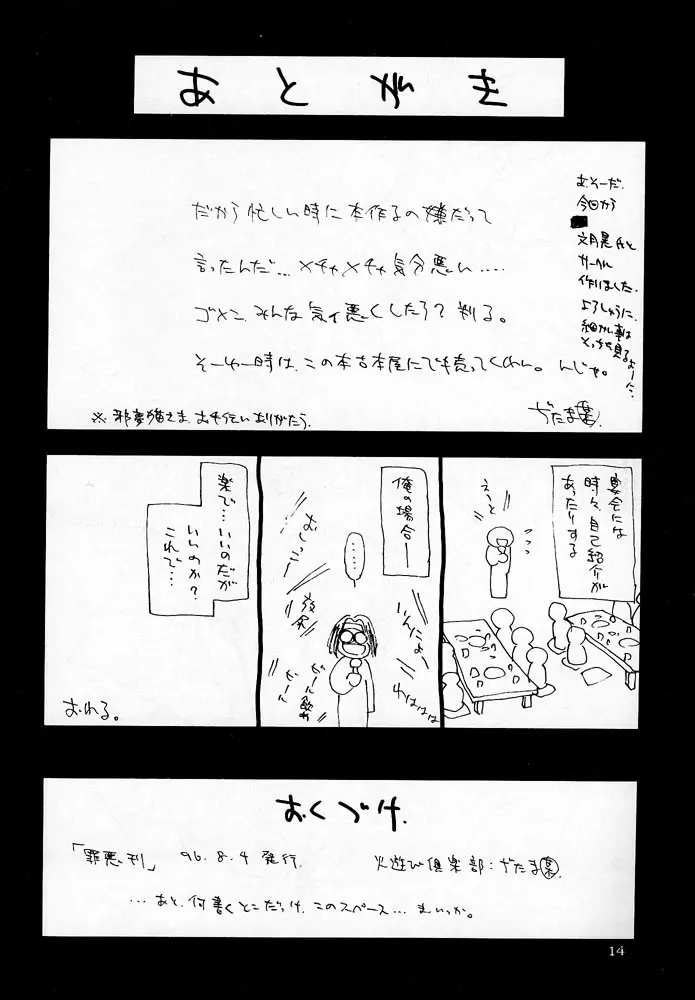 あとがき
だから忙しい時に本作るの嫌だって
言ったんだ…メチャメチャ気分悪い….
ゴメン、みんな気ィ悪くしたろ？判る。
そーゆー時は、この本古本屋にでも売ってくれい。んじゃ。
あ、そーだ。
今回から
文月晃氏と
サークル
作りました。
よろしゅうに。
細かい事は
そっちを見るよーに…
ぢたま
※邪夢猫さま、お手伝いありがとう。
宴会には
時々、自己紹介が
あったりする
えーと
俺の場合―
……
いんにょー
わはははは
おしっこー
放尿
ビール飲め
ビール
楽で…いいのだが
いいのか？
これで…
おわる。
おくづけ
「罪悪刊」 96.8.4発行 火遊び倶楽部：ぢたま
…あと、何書くとこだっけ、このスペース…まいっか。
14